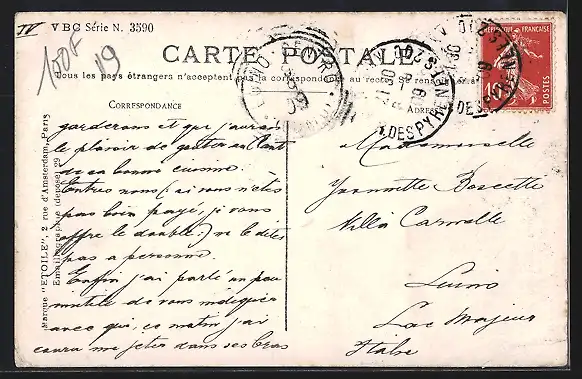 VBC Série N. 3590
100F
19
CARTE POSTALE
Tous les pays étrangers n'acceptent pas la correspondance au recto. Se renseigner à la
CORRESPONDANCE
ADRESSE
RÉPUBLIQUE FRANÇAISE
10
POSTES
DES PYRÉNÉES
Marque "ETOILE", 2 rue d'Amsterdam, Paris
Emaillographie (déposé) 29
garderons et que j'aurai
le plaisir de goûter
de sa bonne cuisine.
Entre nous (si vous n'êtes
pas bien payé, je vous
offre le double:) ne le dites
pas à personne.
Enfin j'ai parlé un peu
de vous
avec qui, ce matin j'ai
couru me jeter dans ses bras
Mademoiselle
Jeannette
Villa
Luino
Lac Majeur
Italie